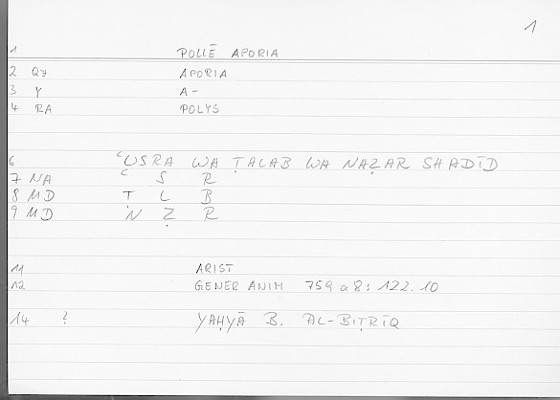 1
1 POLLĒ APORIA
2 QZ APORIA
3 Y A-
4 RA POLYS
6 ʿUSRA WA ṬALAB WA NAẒAR SHADĪD
7 NA ʿ S R
8 MD Ṭ L B
9 MD N Ẓ R
11 ARIST
12 GENER ANIM 759 a 8 : 122.10
14 ? YAḤYĀ B. AL-BIṬRĪQ